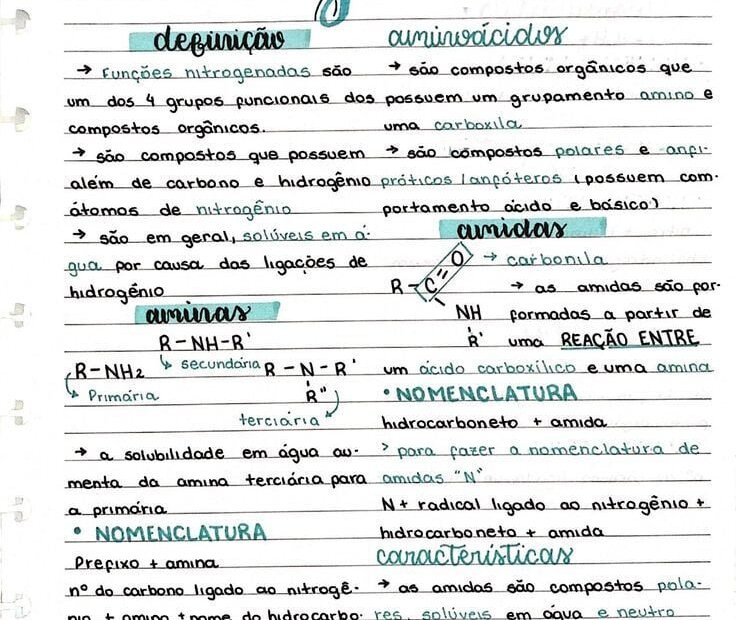 definição
→ Funções nitrogenadas são
um dos 4 grupos funcionais dos
compostos orgânicos.
→ são compostos que possuem
além de carbono e hidrogênio
átomos de nitrogênio
→ são em geral, solúveis em á-
gua por causa das ligações de
hidrogênio
aminas
R-NH-R'
↳ secundária
R-NH2
↳ Primária
R-N-R'
R''
terciária
→ a solubilidade em água au-
menta da amina terciária para
a primária
• NOMENCLATURA
Prefixo + amina
nº do carbono ligado ao nitrogê-
nio + amino + nome do hidrocarbo-
aminoácidos
→ são compostos orgânicos que
possuem um grupamento amino e
uma carboxila
→ são compostos polares e anfi-
próticos / anfóteros (possuem com-
portamento ácido e básico)
amidas
R-C=O → carbonila
NH
R'
→ as amidas são for-
formadas a partir de
uma REAÇÃO ENTRE
um ácido carboxílico e uma amina
• NOMENCLATURA
hidrocarboneto + amida
> para fazer a nomenclatura de
amidas "N"
N + radical ligado ao nitrogênio +
hidrocarboneto + amida
características
→ as amidas são compostos pola-
res, solúveis em água e neutro